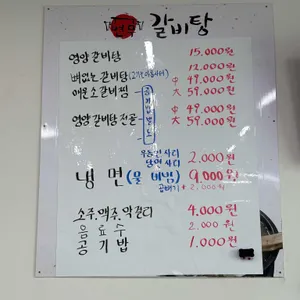 갈비탕
영양갈비탕 15,000원
뼈없는갈비탕 12,000원
매운소갈비찜 中 49,000원
大 59,000원
영양갈비탕전골 中 49,000원
大 59,000원
우동면사리
당면사리 2,000원
냉면(물 비빔) 9,000원
곱배기 + 2,000원
소주,맥주,막걸리 4,000원
음료수 2,000원
공기밥 1,000원